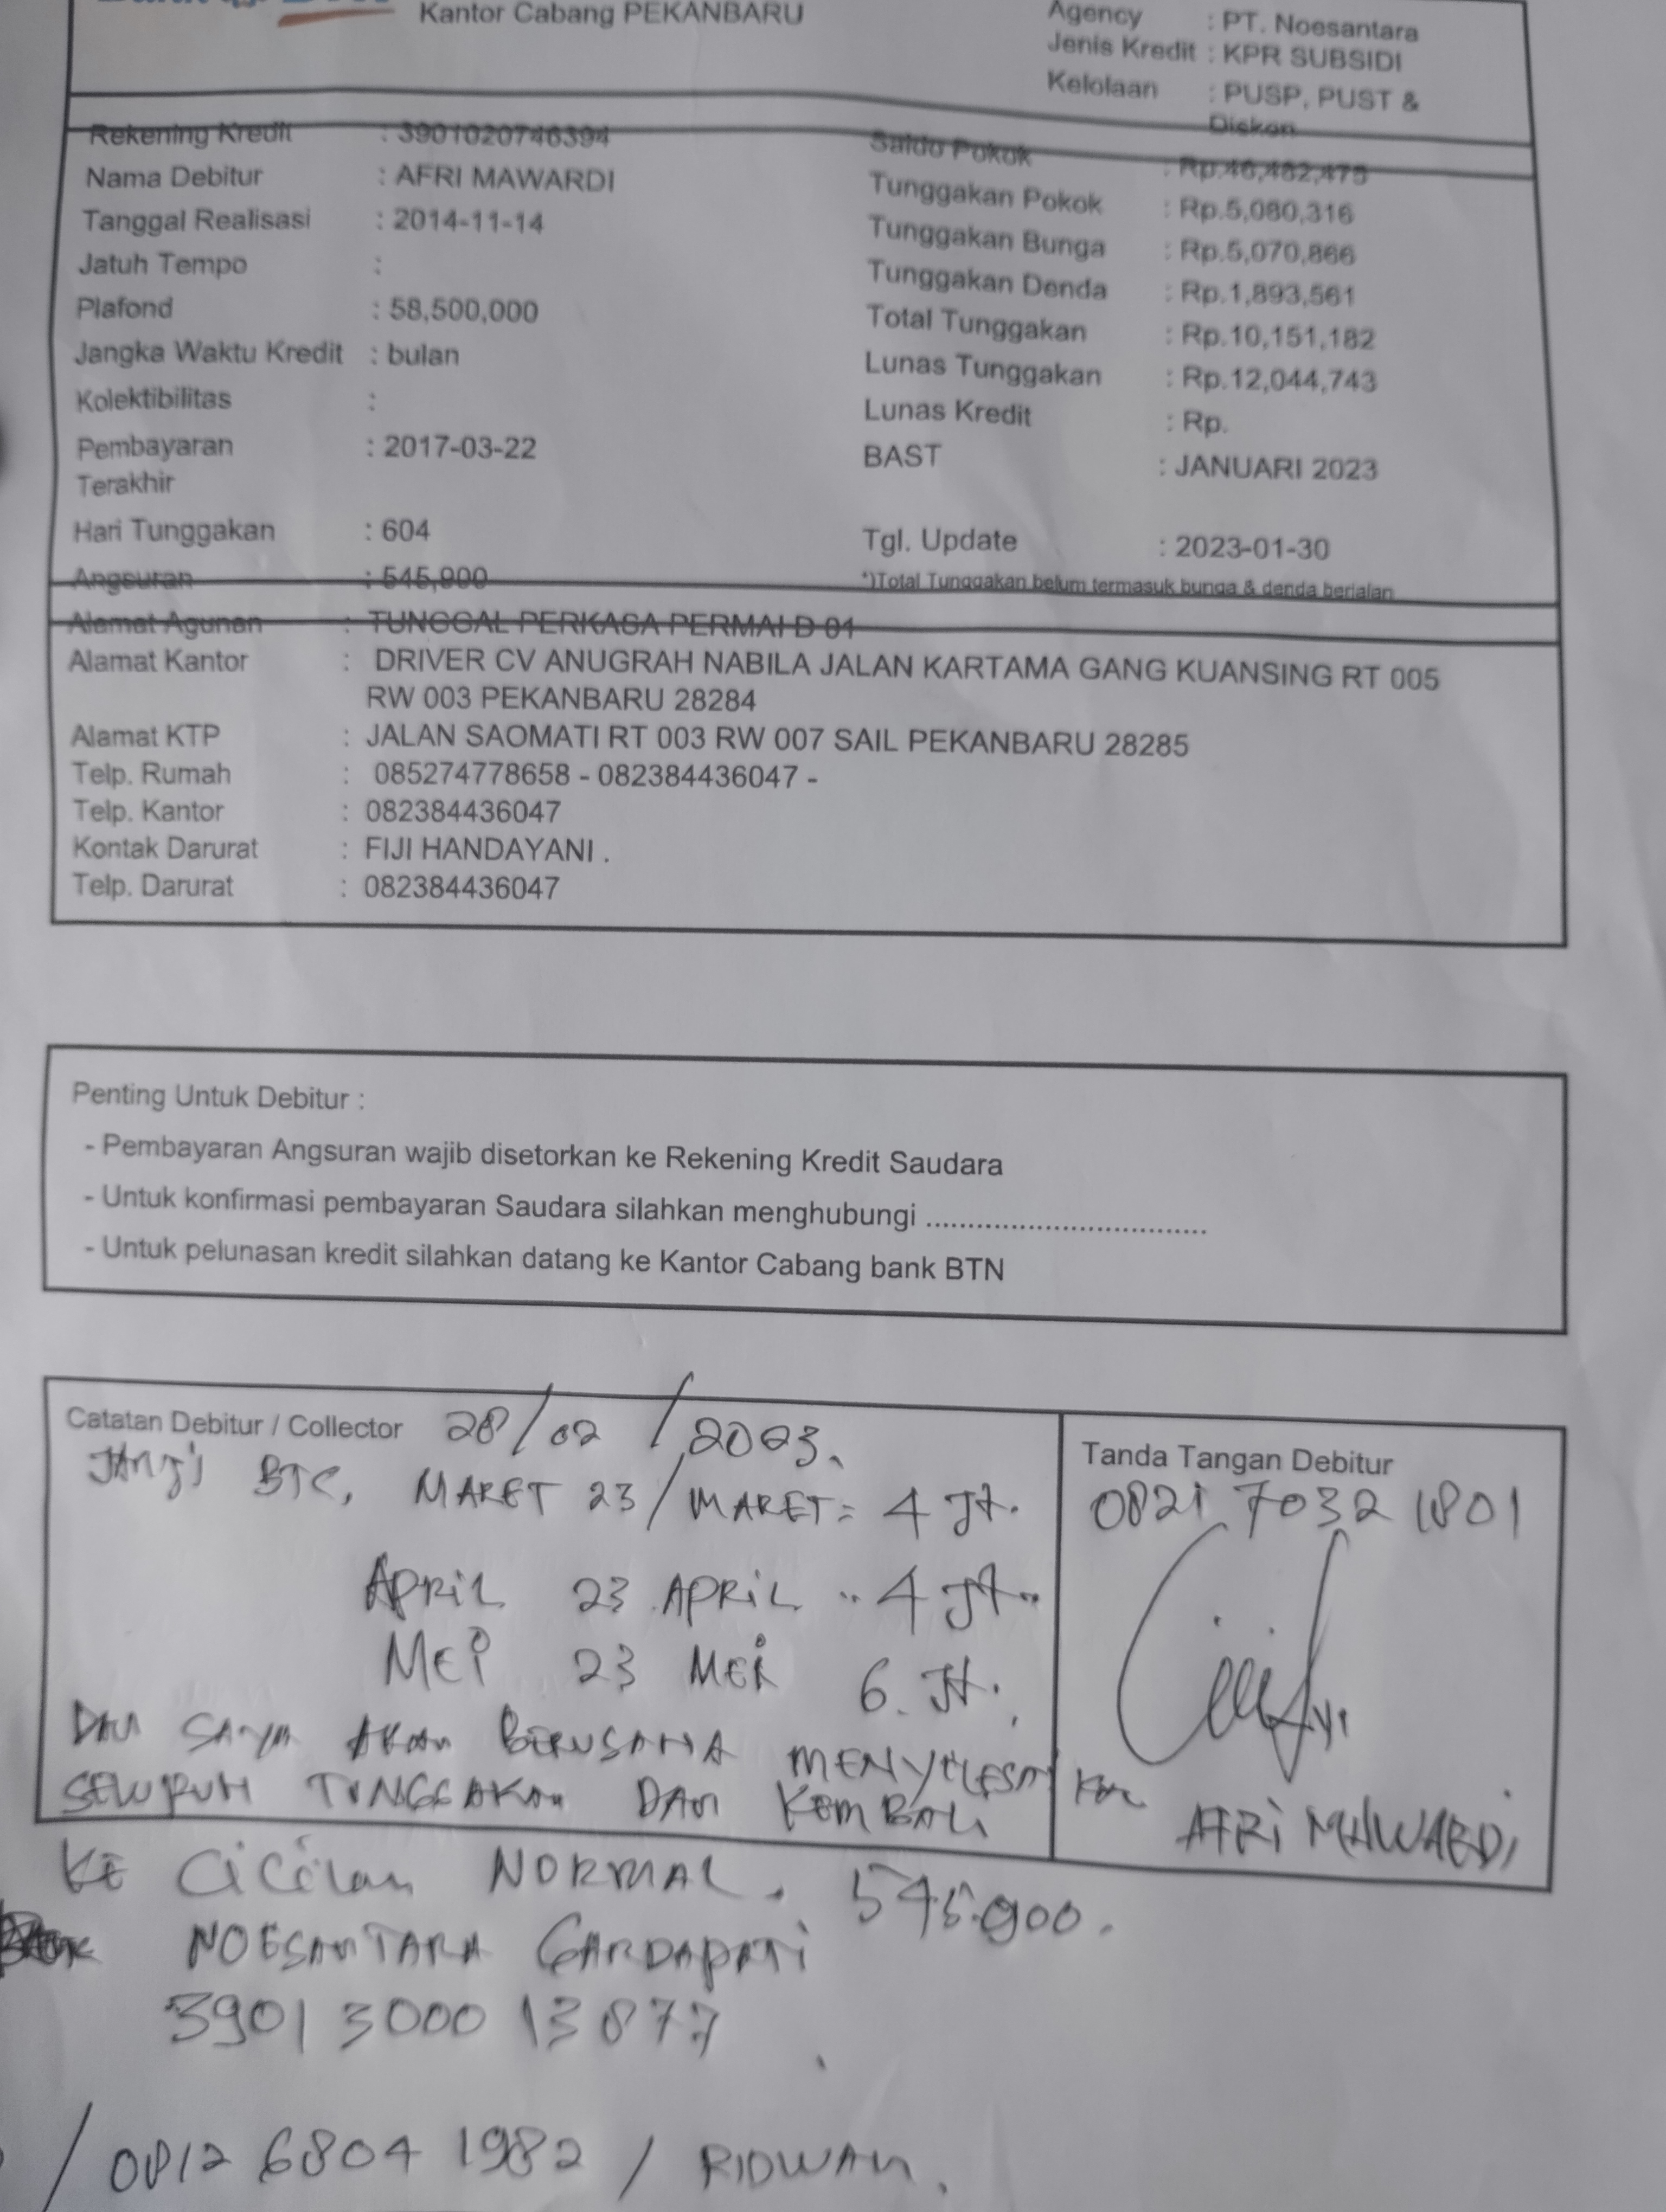 Kantor Cabang PEKANBARU
Agency : PT. Noesantara
Jenis Kredit : KPR SUBSIDI
Kelolaan : PUSP, PUST &
Diskon
Rekening Kredit : 3901020746394
Nama Debitur : AFRI MAWARDI
Tanggal Realisasi : 2014-11-14
Jatuh Tempo :
Plafond : 58,500,000
Jangka Waktu Kredit : bulan
Kolektibilitas :
Pembayaran : 2017-03-22
Terakhir
Hari Tunggakan : 604
Angsuran : 545,900
Saldo Pokok : Rp.46,482,475
Tunggakan Pokok : Rp.5,080,316
Tunggakan Bunga : Rp.5,070,866
Tunggakan Denda : Rp.1,893,561
Total Tunggakan : Rp.10,151,182
Lunas Tunggakan : Rp.12,044,743
Lunas Kredit : Rp.
BAST : JANUARI 2023
Tgl. Update : 2023-01-30
*)Total Tunggakan belum termasuk bunga & denda berjalan
Alamat Agunan : TUNGGAL PERKASA PERMAI D 01
Alamat Kantor : DRIVER CV ANUGRAH NABILA JALAN KARTAMA GANG KUANSING RT 005
RW 003 PEKANBARU 28284
Alamat KTP : JALAN SAOMATI RT 003 RW 007 SAIL PEKANBARU 28285
Telp. Rumah : 085274778658 - 082384436047 -
Telp. Kantor : 082384436047
Kontak Darurat : FIJI HANDAYANI .
Telp. Darurat : 082384436047
Penting Untuk Debitur :
- Pembayaran Angsuran wajib disetorkan ke Rekening Kredit Saudara
- Untuk konfirmasi pembayaran Saudara silahkan menghubungi ..................................
- Untuk pelunasan kredit silahkan datang ke Kantor Cabang bank BTN
Catatan Debitur / Collector 28/02/2023.
JANJI BTC, MARET 23/MARET = 4 Jt.
APRIL 23 APRIL .. 4 Jt..
MEI 23 MEI 6. Jt.
DAN SAYA AKAN BERUSAHA MENYELESAIKAN
SELURUH TUNGGAKAN DAN KEMBALI
KE CiCilan NORMAL. 545.900.
NOESANTARA GARDAPATI
39013000 13877
/ 0812 6804 1982 / RIDWAN.
Tanda Tangan Debitur
0821 7032 1801
AFRI MAWARDI